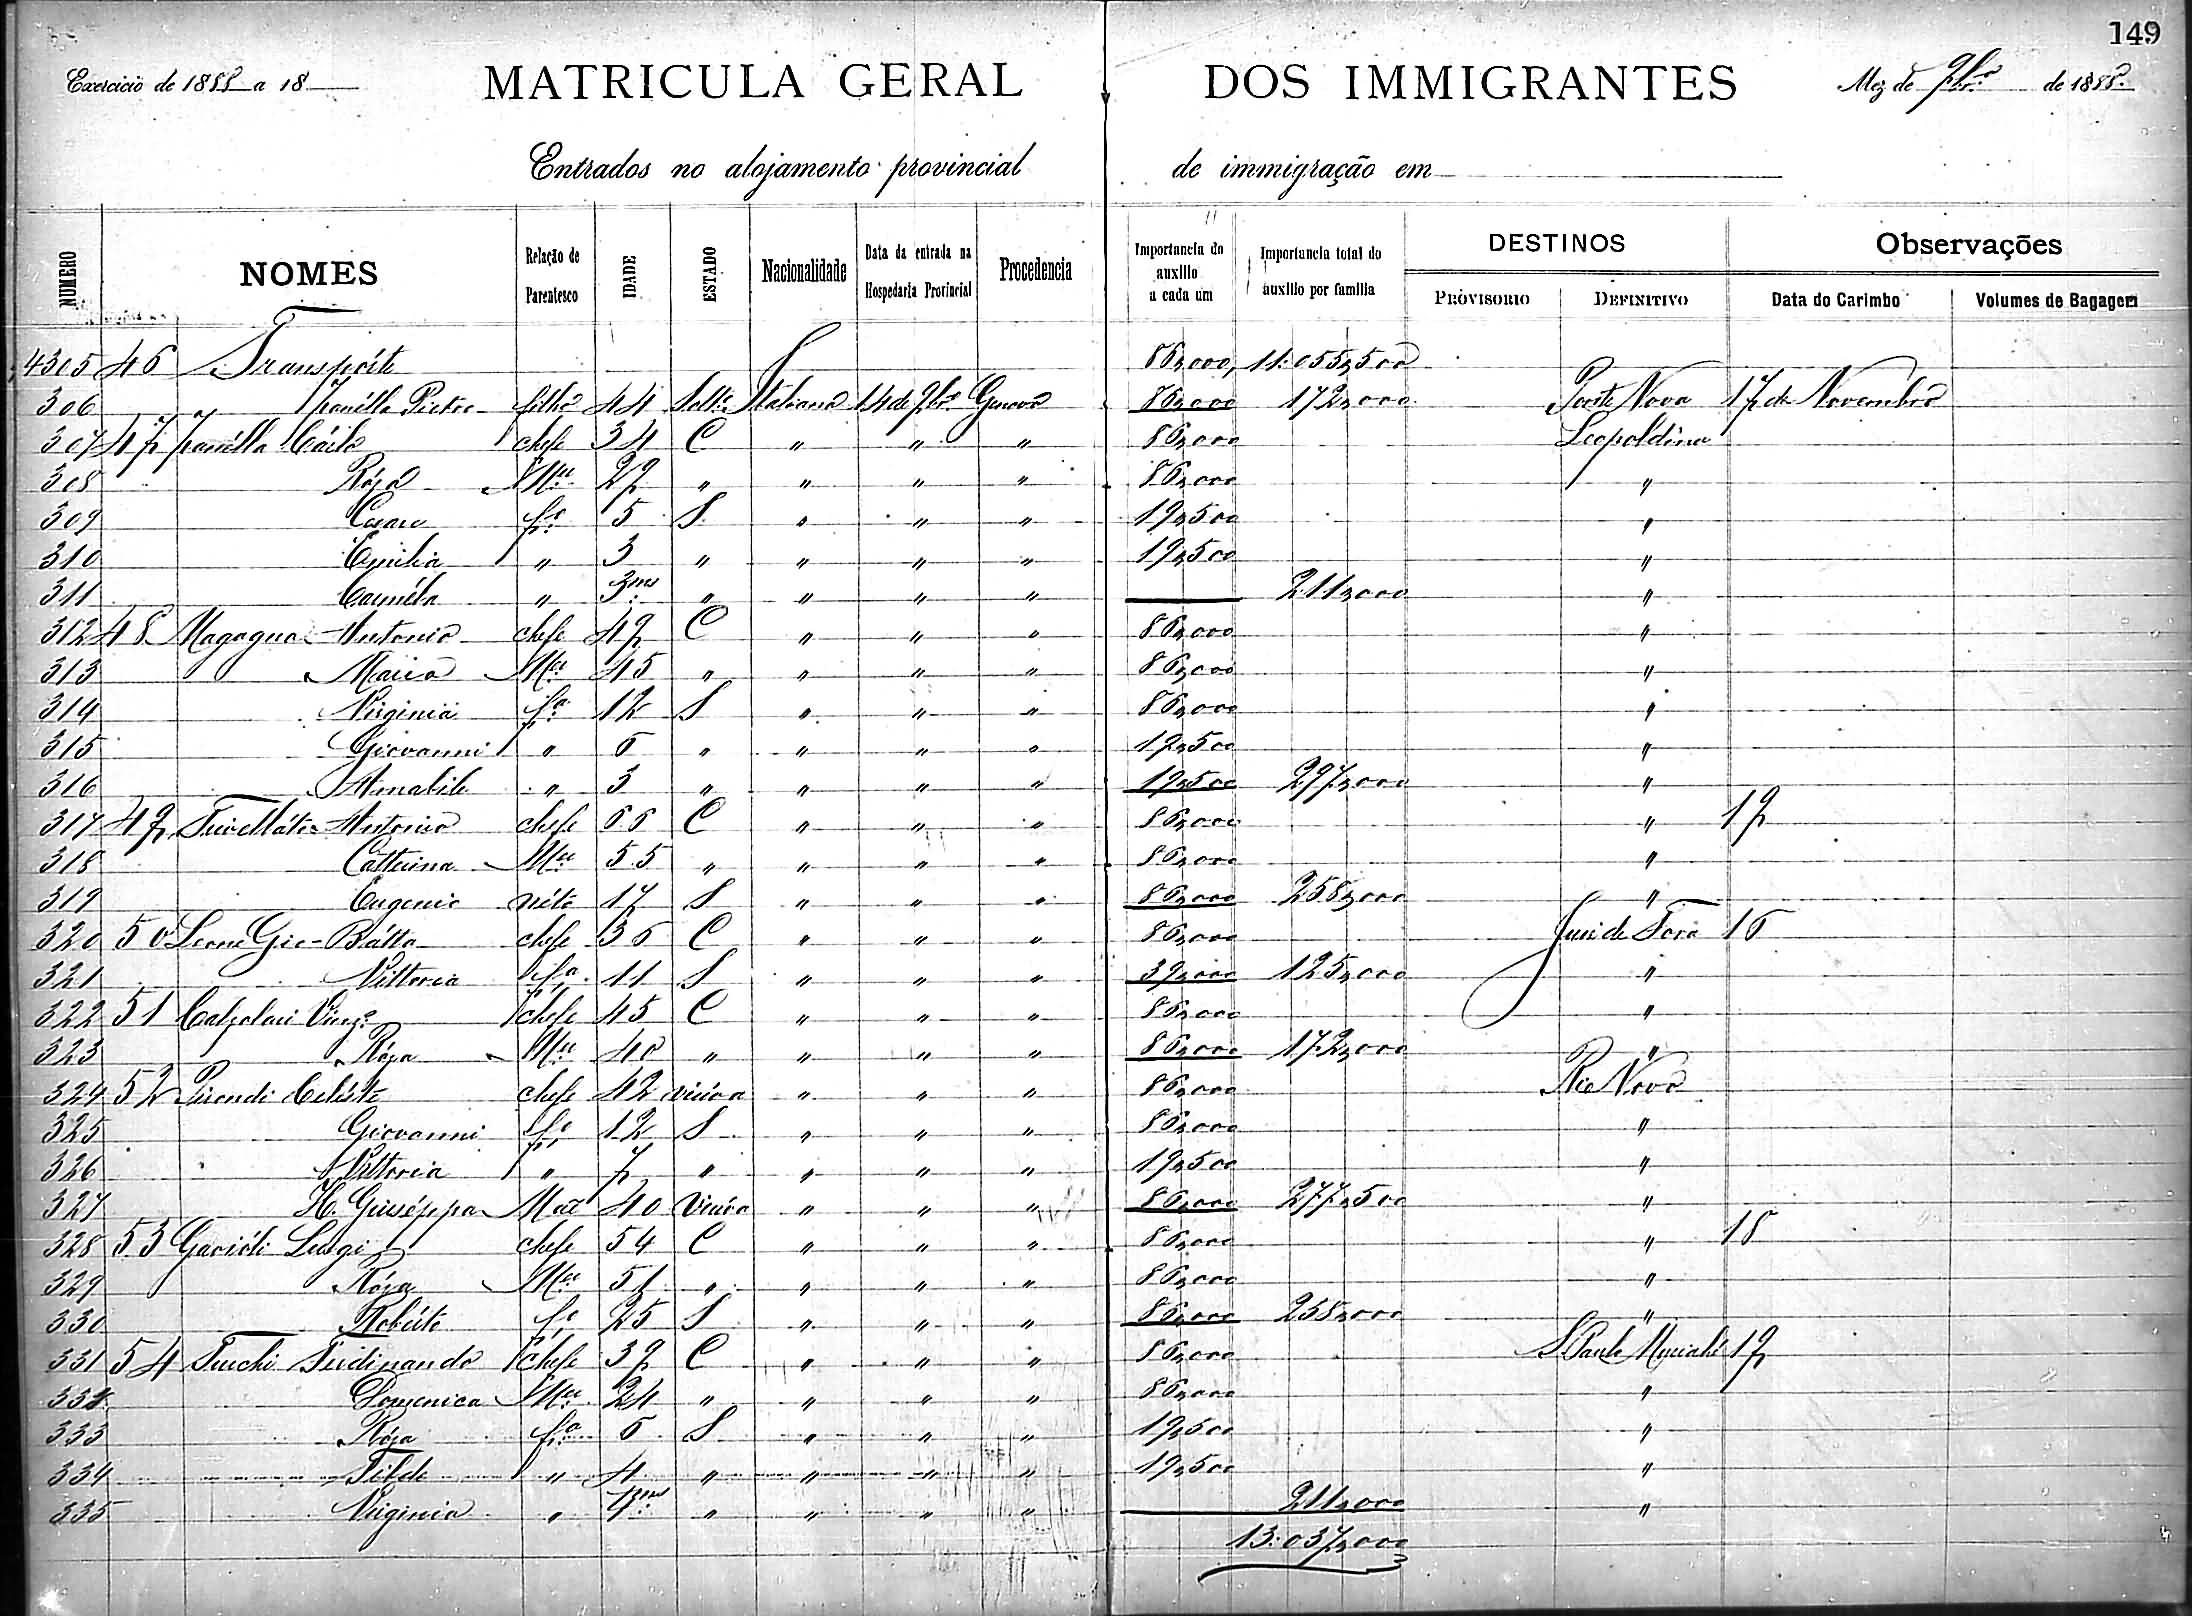 149
Exercicio de 1888 a 18
MATRICULA GERAL DOS IMMIGRANTES
Mez de 9br.o de 1888.
Entrados no alojamento provincial de immigração em
NUMERO NOMES Relação de Parentesco IDADE ESTADO Nacionalidade Data da entrada na Hospedaria Provincial Procedencia Importancia do auxilio a cada um Importancia total do auxilio por familia DESTINOS PROVISORIO DEFINITIVO Observações Data do Carimbo Volumes de Bagagem
4305 46 Transpórte 86,000 11:055,500
306 Pietro filho 44 Solt.o Italiana 14 de 9br.o Genova 86,000 172,000 Ponte Nova 17 de Novembro
307 47 Cárlo chefe 34 C " " " 86,000 Leopoldina
308 Róza M.er 29 " " " " 86,000 "
309 Cesare f.o 5 S " " " 19,500 "
310 Emilia " 3 " " " " 19,500 "
311 Carméla " 3 m.s " " " " 211,000 "
312 48 Magagna Antonio chefe 49 C " " " 86,000 "
313 Maria M.er 45 " " " " 86,000 "
314 Virginia f.a 12 S " " " 86,000 "
315 Giovanni " 6 " " " " 19,500 "
316 Amabile " 3 " " " " 19,500 297,000 "
317 49 Antonio chefe 66 C " " " 86,000 " 19
318 Catterina M.er 55 " " " " 86,000 "
319 Eugenio néto 17 S " " " 86,000 258,000 "
320 50 Leone Gio-Bátta chefe 36 C " " " 86,000 Juiz de Fora 16
321 Vittoria f.a 11 S " " " 39,000 125,000 "
322 51 Calzolari Vinz.o chefe 45 C " " " 86,000 "
323 Róza M.er 40 " " " " 86,000 172,000 "
324 52 Celéste chefe 42 viúva " " " 86,000 Rio Novo
325 Giovanni f.o 12 S " " " 86,000 "
326 Vittoria " 7 " " " " 19,500 "
327 H. Giuséppa Mãi 40 Viúva " " " 86,000 277,500 "
328 53 Luigi chefe 54 C " " " 86,000 " 18
329 Róza M.er 51 " " " " 86,000 "
330 Robérto f.o 25 S " " " 86,000 258,000 "
331 54 Turchi Ferdinando chefe 39 C " " " 86,000 S. Paulo Muriahé 19
332 Domenica M.er 24 " " " " 86,000 "
333 Róza f.a 6 S " " " 19,500 "
334 Tilde " 4 " " " " 19,500 "
335 Virginia " m.s " " " " 211,000 "
13:037,000